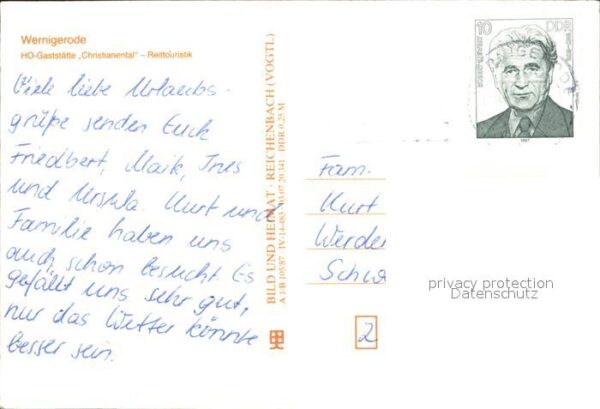 Wernigerode
HO-Gaststätte „Christianental" – Reittouristik
Viele liebe Urlaubs-
grüße senden Euch
Friedbert, Maik, Ines
und Ursula. Kurt und
Familie haben uns
auch schon besucht. Es
gefällt uns sehr gut,
nur das Wetter könnte
besser sein.
BILD UND HEIMAT · REICHENBACH (VOGTL)
10
DDR
1987
Fam.
Kurt
Werder
Schw
privacy protection
Datenschutz
2